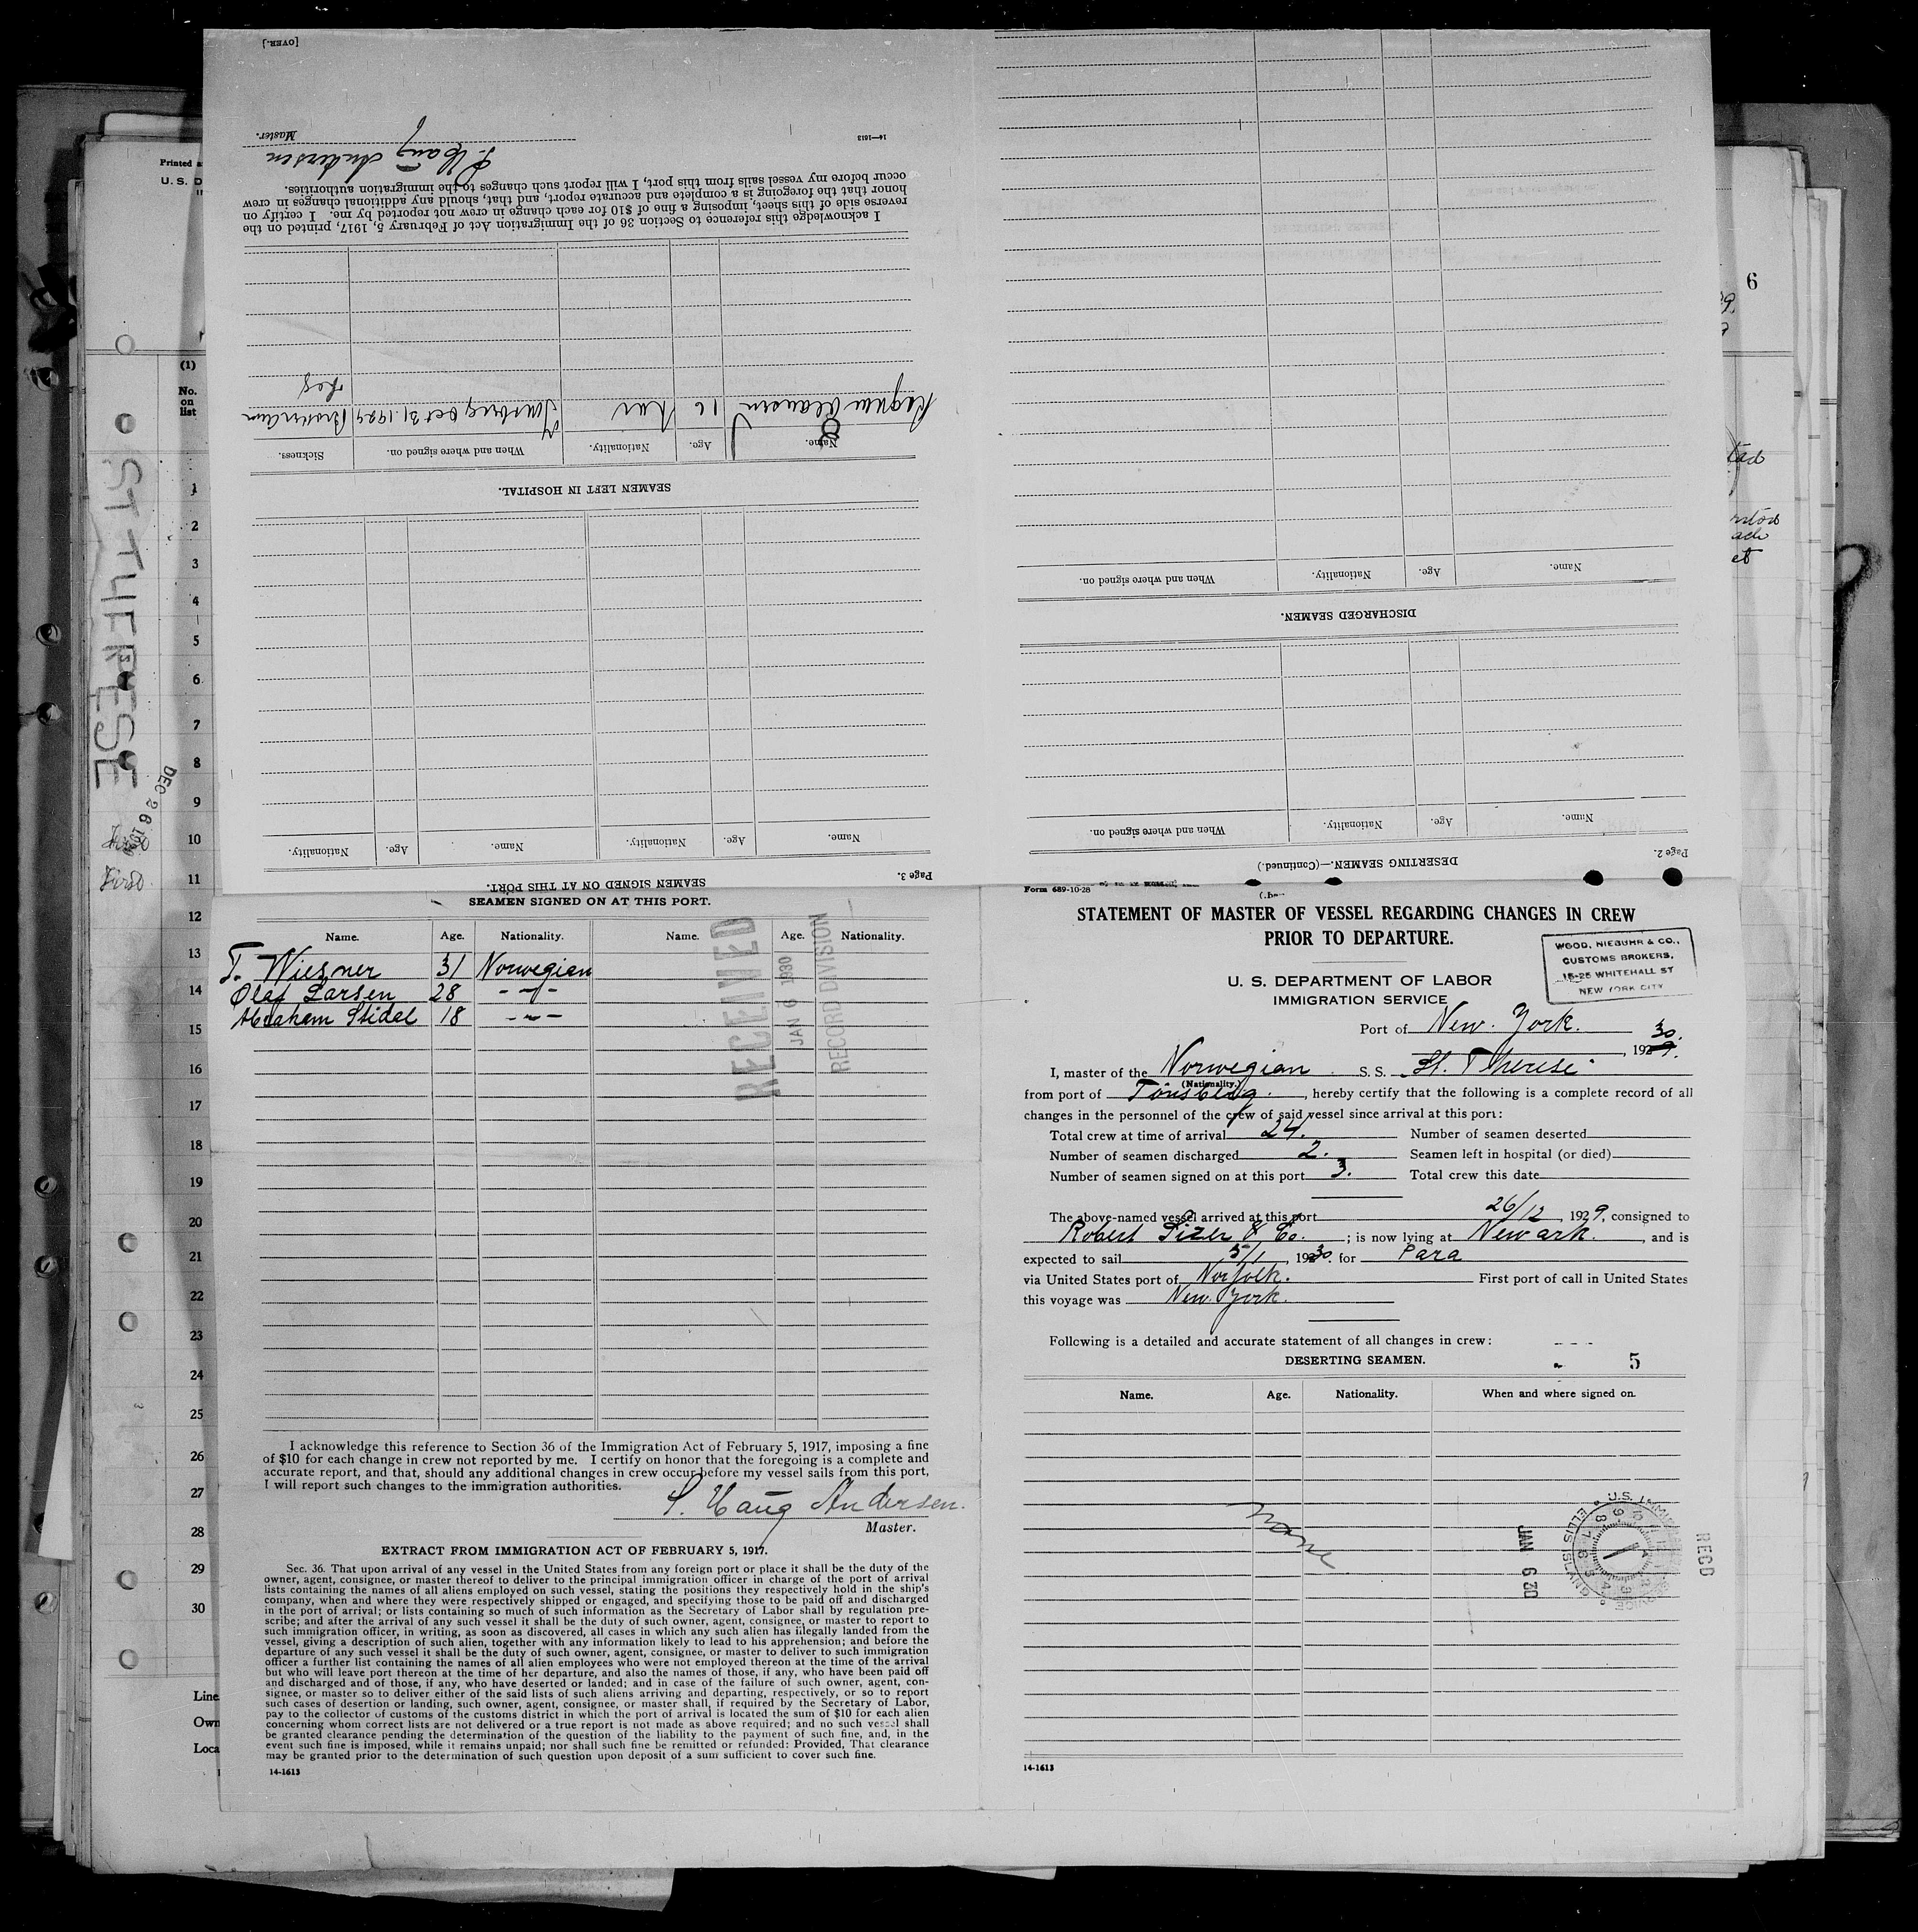 [OVER.]
14—1613
Master.
S. Haug Andersen
I acknowledge this reference to Section 36 of the Immigration Act of February 5, 1917, printed on the
reverse side of this sheet, imposing a fine of $10 for each change in crew not reported by me. I certify on
honor that the foregoing is a complete and accurate report, and that, should any additional changes in crew
occur before my vessel sails from this port, I will report such changes to the immigration authorities.
SEAMEN LEFT IN HOSPITAL.
Name. Age. Nationality. When and where signed on. Sickness.
16 Nor Tonsberg Oct 31. 1929
Leg
Page 3.
SEAMEN SIGNED ON AT THIS PORT.
Name. Age. Nationality. Name. Age. Nationality.
Page 2.
DESERTING SEAMEN.—(Continued.)
Name. Age. Nationality. When and where signed on.
DISCHARGED SEAMEN.
Name. Age. Nationality. When and where signed on.
Printed
U. S. D
(1)
No.
on
list
1
2
3
4
5
6
7
8
9
10
11
12
13
14
15
16
17
18
19
20
21
22
23
24
25
26
27
28
29
30
Line
Own
Loca
ST THERESE
DEC 26 1929
First
6
SEAMEN SIGNED ON AT THIS PORT.
Name. Age. Nationality. Name. Age. Nationality.
T. Wiesner 31 Norwegian
Olaf Larsen 28 - " -
Abraham Stidal 18 - " -
RECEIVED
JAN 6 1930
RECORD DIVISION
I acknowledge this reference to Section 36 of the Immigration Act of February 5, 1917, imposing a fine
of $10 for each change in crew not reported by me. I certify on honor that the foregoing is a complete and
accurate report, and that, should any additional changes in crew occur before my vessel sails from this port,
I will report such changes to the immigration authorities.
S. Haug Andersen.
Master.
EXTRACT FROM IMMIGRATION ACT OF FEBRUARY 5, 1917.
Sec. 36. That upon arrival of any vessel in the United States from any foreign port or place it shall be the duty of the
owner, agent, consignee, or master thereof to deliver to the principal immigration officer in charge of the port of arrival
lists containing the names of all aliens employed on such vessel, stating the positions they respectively hold in the ship's
company, when and where they were respectively shipped or engaged, and specifying those to be paid off and discharged
in the port of arrival; or lists containing so much of such information as the Secretary of Labor shall by regulation pre-
scribe; and after the arrival of any such vessel it shall be the duty of such owner, agent, consignee, or master to report to
such immigration officer, in writing, as soon as discovered, all cases in which any such alien has illegally landed from the
vessel, giving a description of such alien, together with any information likely to lead to his apprehension; and before the
departure of any such vessel it shall be the duty of such owner, agent, consignee, or master to deliver to such immigration
officer a further list containing the names of all alien employees who were not employed thereon at the time of the arrival
but who will leave port thereon at the time of her departure, and also the names of those, if any, who have been paid off
and discharged and of those, if any, who have deserted or landed; and in case of the failure of such owner, agent, con-
signee, or master so to deliver either of the said lists of such aliens arriving and departing, respectively, or so to report
such cases of desertion or landing, such owner, agent, consignee, or master shall, if required by the Secretary of Labor,
pay to the collector of customs of the customs district in which the port of arrival is located the sum of $10 for each alien
concerning whom correct lists are not delivered or a true report is not made as above required; and no such vessel shall
be granted clearance pending the determination of the question of the liability to the payment of such fine, and, in the
event such fine is imposed, while it remains unpaid; nor shall such fine be remitted or refunded: Provided, That clearance
may be granted prior to the determination of such question upon deposit of a sum sufficient to cover such fine.
14-1613
Form 689-10-28
STATEMENT OF MASTER OF VESSEL REGARDING CHANGES IN CREW
PRIOR TO DEPARTURE.
WOOD, NIEBUHR & CO.,
CUSTOMS BROKERS,
15-25 WHITEHALL ST
NEW YORK CITY
U. S. DEPARTMENT OF LABOR
IMMIGRATION SERVICE
Port of New York.
, 1930.
I, master of the Norwegian S. S. St. Therese
(Nationality.)
from port of Tönsberg. , hereby certify that the following is a complete record of all
changes in the personnel of the crew of said vessel since arrival at this port:
Total crew at time of arrival 24. Number of seamen deserted
Number of seamen discharged 2. Seamen left in hospital (or died)
Number of seamen signed on at this port 3. Total crew this date
The above-named vessel arrived at this port 26/12, 1929, consigned to
Robert Dizer & Co. ; is now lying at Newark. , and is
expected to sail 5/1, 1930. for Para
via United States port of Norfolk. First port of call in United States
this voyage was New. York.
Following is a detailed and accurate statement of all changes in crew:
DESERTING SEAMEN.
5
Name. Age. Nationality. When and where signed on.
None
JAN 6 30
U.S. IMMIGRATION SERVICE ELLIS ISLAND
REC'D
14-1613